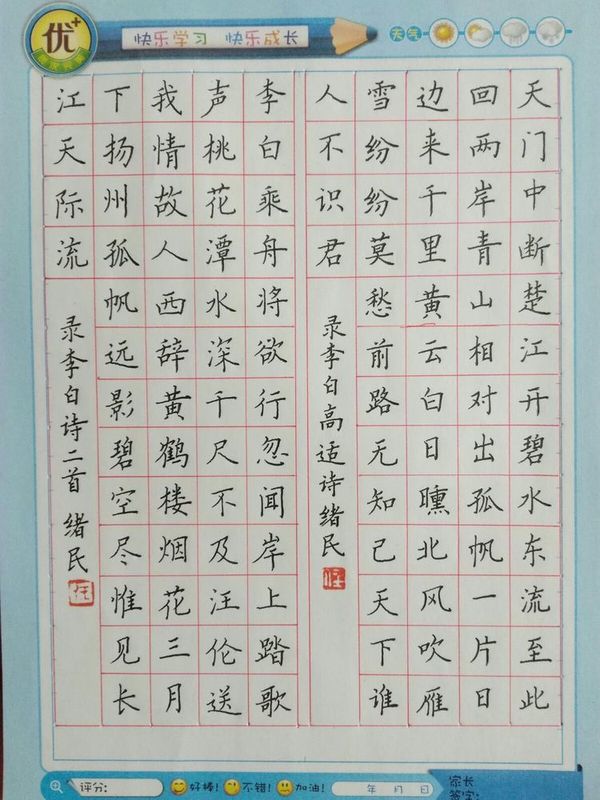 优+
快乐学习 快乐成长
天气
天门中断楚江开碧水东流至此
回两岸青山相对出孤帆一片日
边来千里黄云白日曛北风吹雁
雪纷纷莫愁前路无知己天下谁
人不识君 录李白高适诗绪民
李白乘舟将欲行忽闻岸上踏歌
声桃花潭水深千尺不及汪伦送
我情故人西辞黄鹤楼烟花三月
下扬州孤帆远影碧空尽惟见长
江天际流 录李白诗二首 绪民
评分: 好棒! 不错! 加油! 年 月 日 家长
签字: